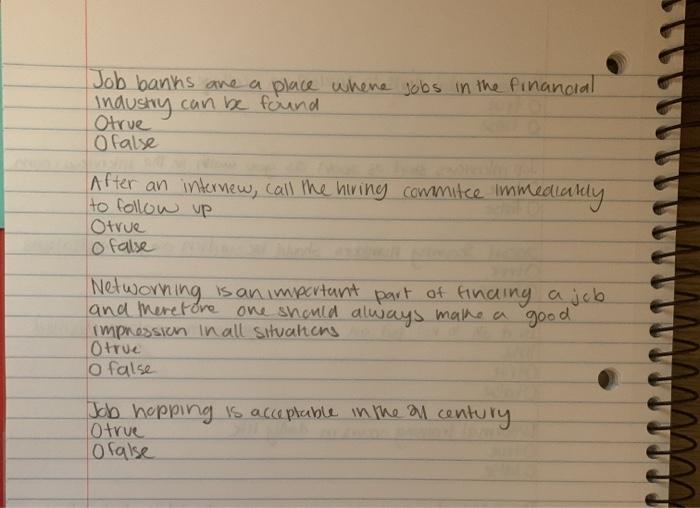 Job banks are a place where jobs in the financial
industry can be found
O true
O false
After an interview, call the hiring commitee immediately
to follow up
O true
O false
Networking is an important part of finding a job
and therefore one should always make a good
impression in all situations
O true
O false
Job hopping is acceptable in the 21 century
O true
O false